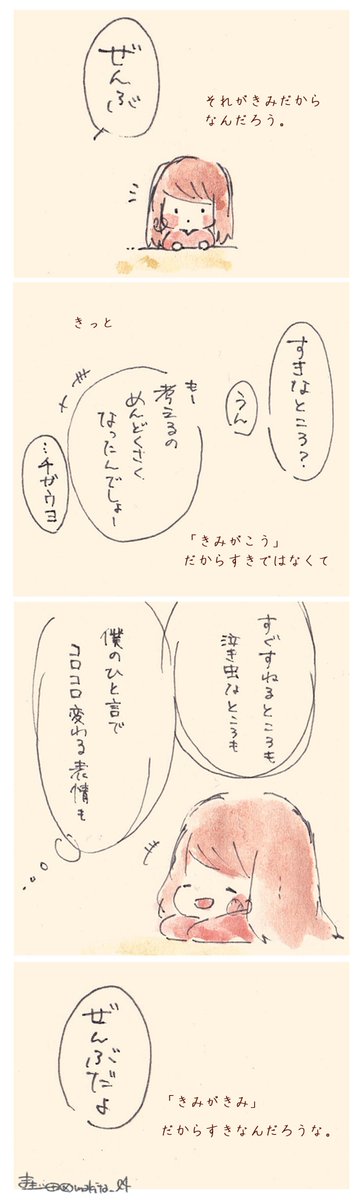 ぜんぶ
それがきみだから
なんだろう。
すきなところ?
うん
きっと
もー
考えるの
めんどくさく
なったんでしょー
…チガウヨ
「きみがこう」
だからすきではなくて
すぐすねるところも
泣き虫なところも
僕のひと言で
コロコロ変わる表情も
ぜんぶだよ
「きみがきみ」
だからすきなんだろうな。